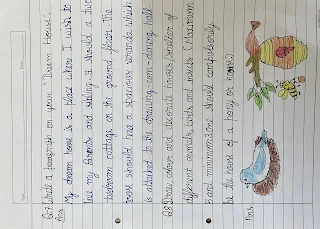 Q.7 Write a paragraph on your 'Dream House'.
Ans My dream house is a place where I wish to
live my parents and sibling. It should a two
bedroom cottage on the ground floor. The
house should has a spacious veranda which
is attached to the drawing-cum-dining hall.
Q.8 Draw, colour and decorate homes/shelters of
different animals, birds and insects (Maximum
5 and minimum 3 one should compulsorily
be the house of a honey or house)
Ans.